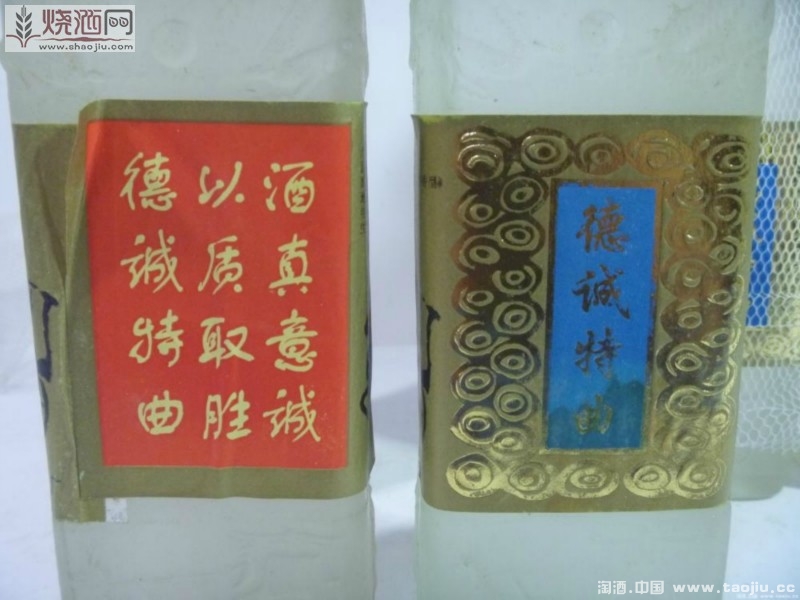 烧酒网
www.shaojiu.com
酒真意诚
以质取胜
德诚特曲
德诚特曲
淘酒.中国 www.taojiu.cc